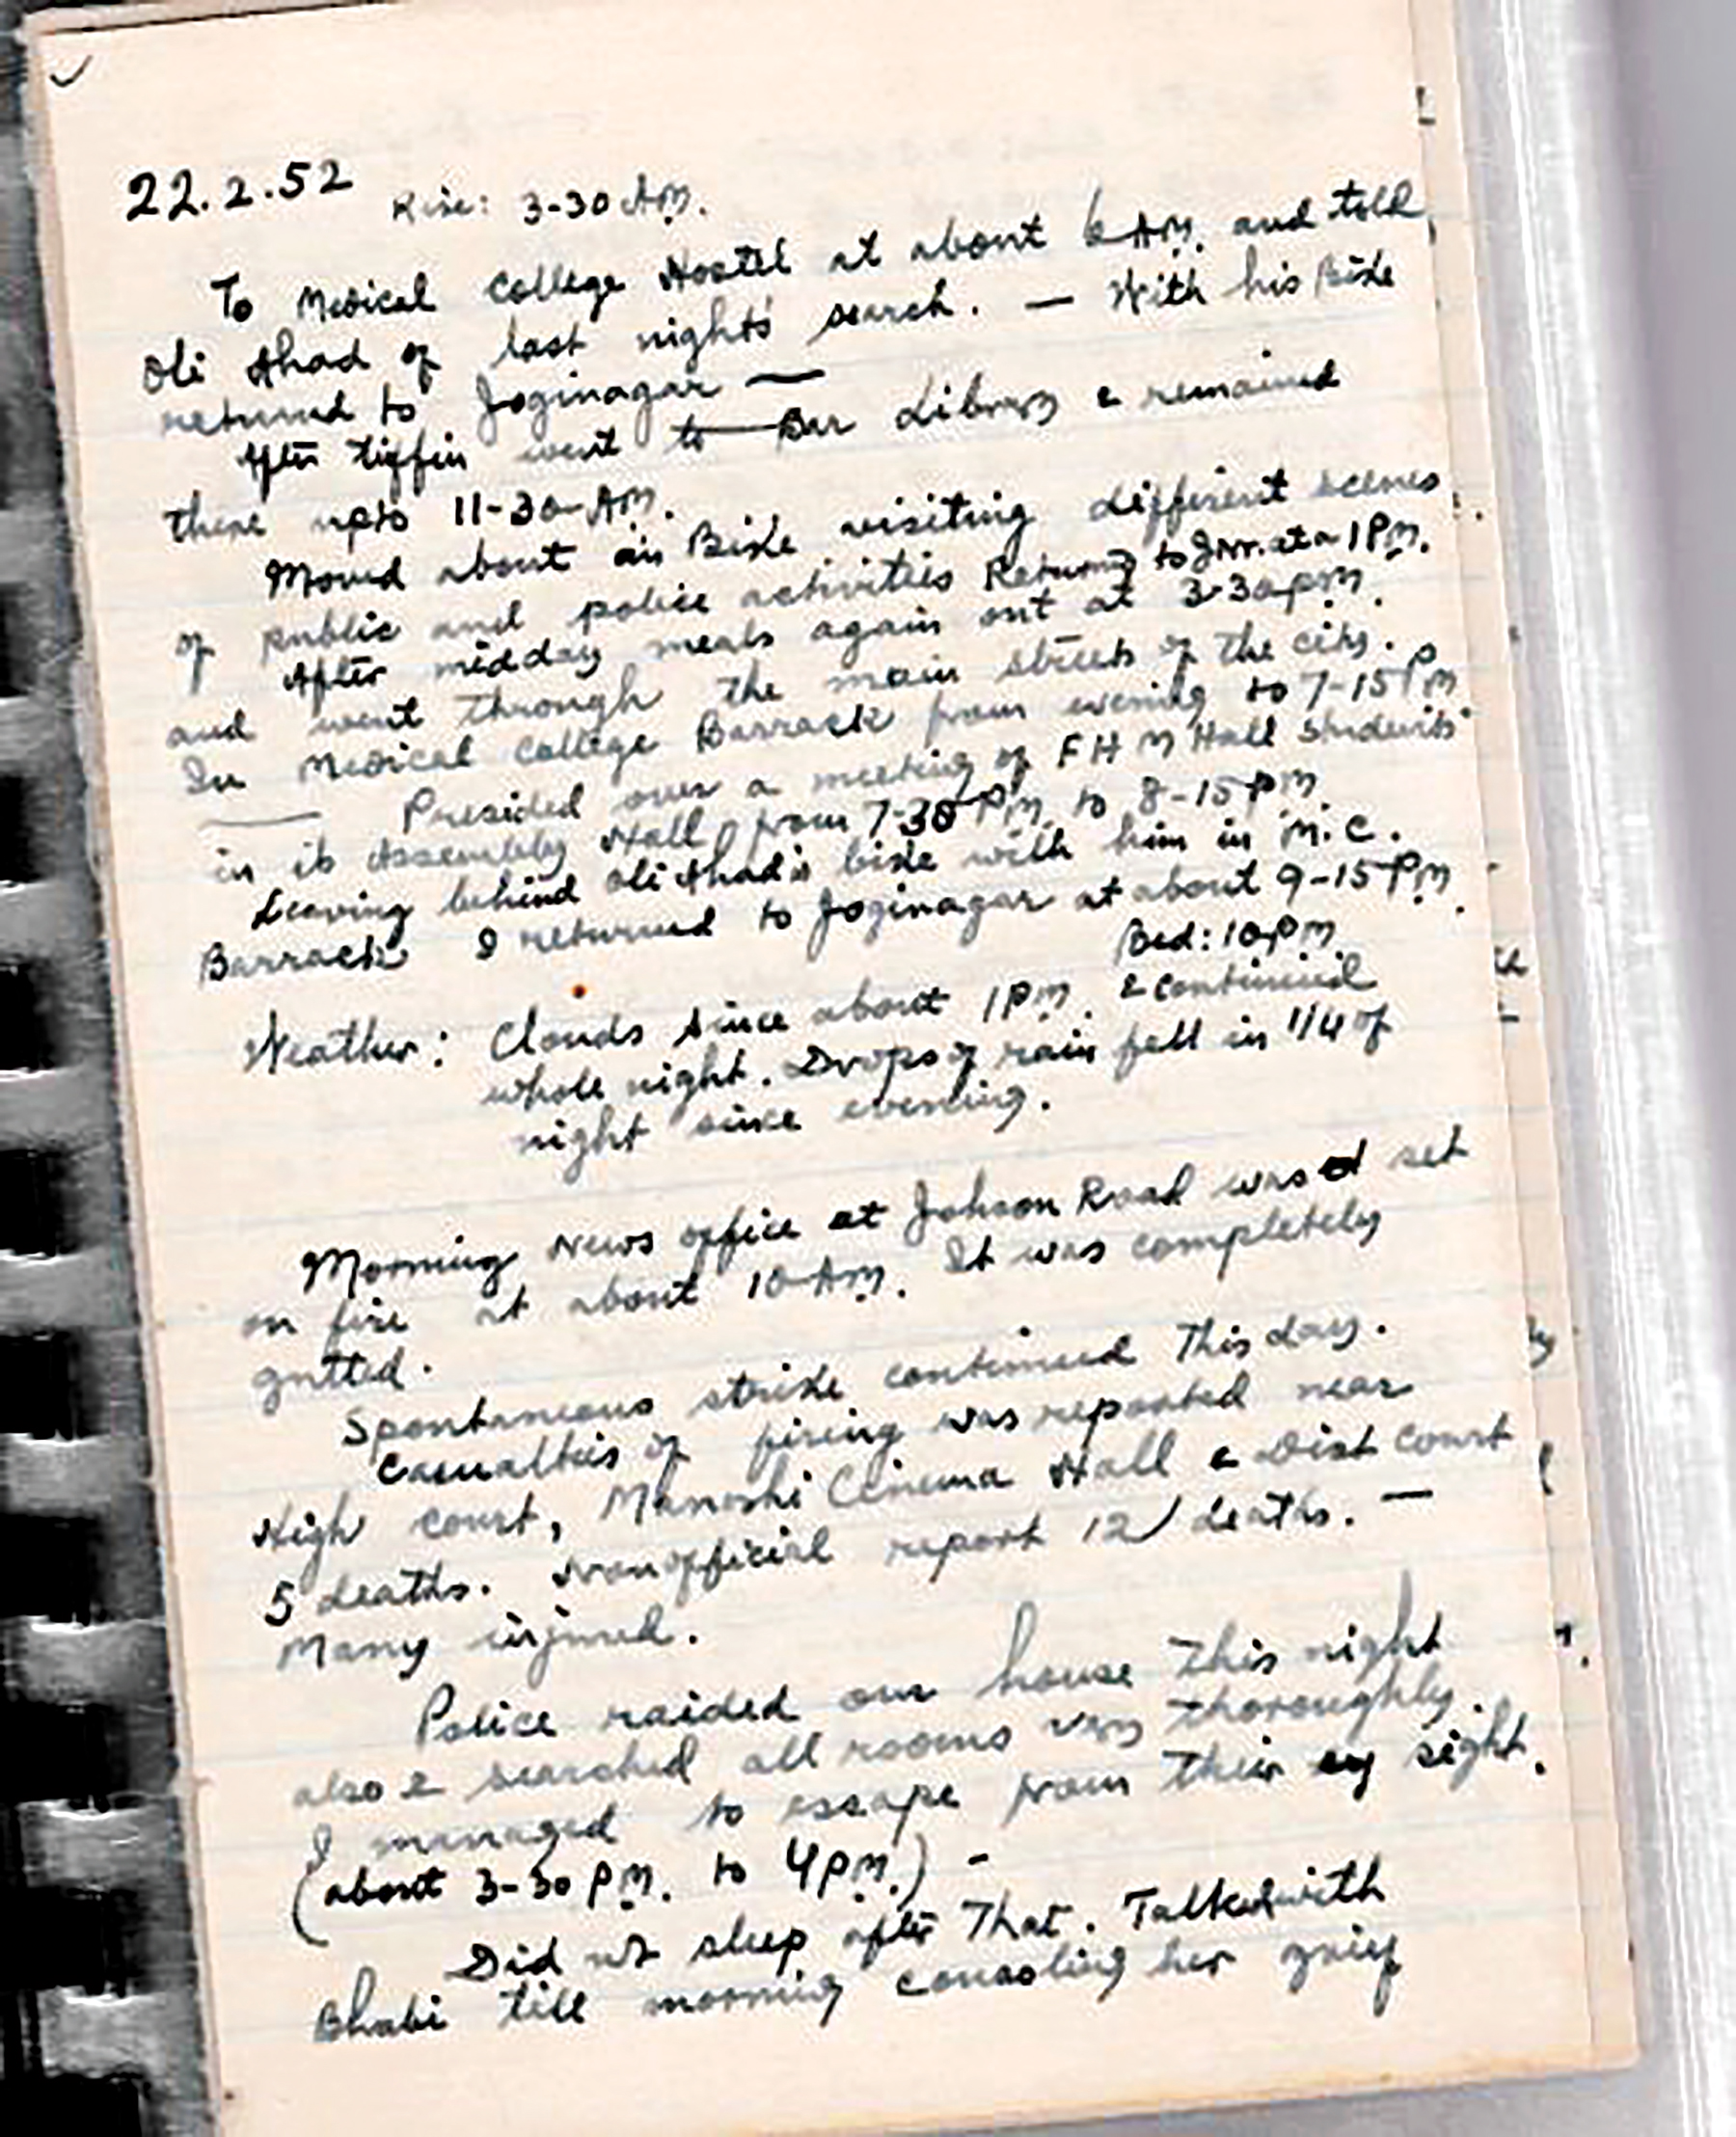 22.2.52 Rise: 3-30 AM.
To Medical College Hostel at about 6 AM. and told
Oli Ahad of last night's search. — With his Bike
returned to Joginagar —
After tiffin went to Bar Library & remained
there upto 11-30 AM.
Moved about on Bike visiting different scenes
of public and police activities Returned to at 1 PM.
After midday meals again out at 3-30 pm.
and went through the main streets of the city.
In Medical College Barrack from evening to 7-15 PM
— Presided over a meeting of F H M Hall Students'
in its Assembly Hall from 7-30 PM to 8-15 pm.
Leaving behind Oli Ahad's bike with him in M.C.
Barrack I returned to Joginagar at about 9-15 PM.
Bed: 10 pm
Weather: Clouds since about 1 PM. & continued
whole night. Drops of rain fell in 1/4 of
night since evening.
Morning News office at Johson Road was set
on fire at about 10 AM. It was completely
gutted.
Spontaneous strike continued this day.
Casualties of firing was reported near
High court, Manoshi Cinema Hall & Dist court
5 deaths. Nonofficial report 12 deaths. —
Many injured.
Police raided our house this night
also & searched all rooms very thoroughly.
I managed to escape from their sight.
(about 3-30 PM. to 4 PM.) -
Did not sleep after that. Talked with
Bhabi till morning consoling her grief